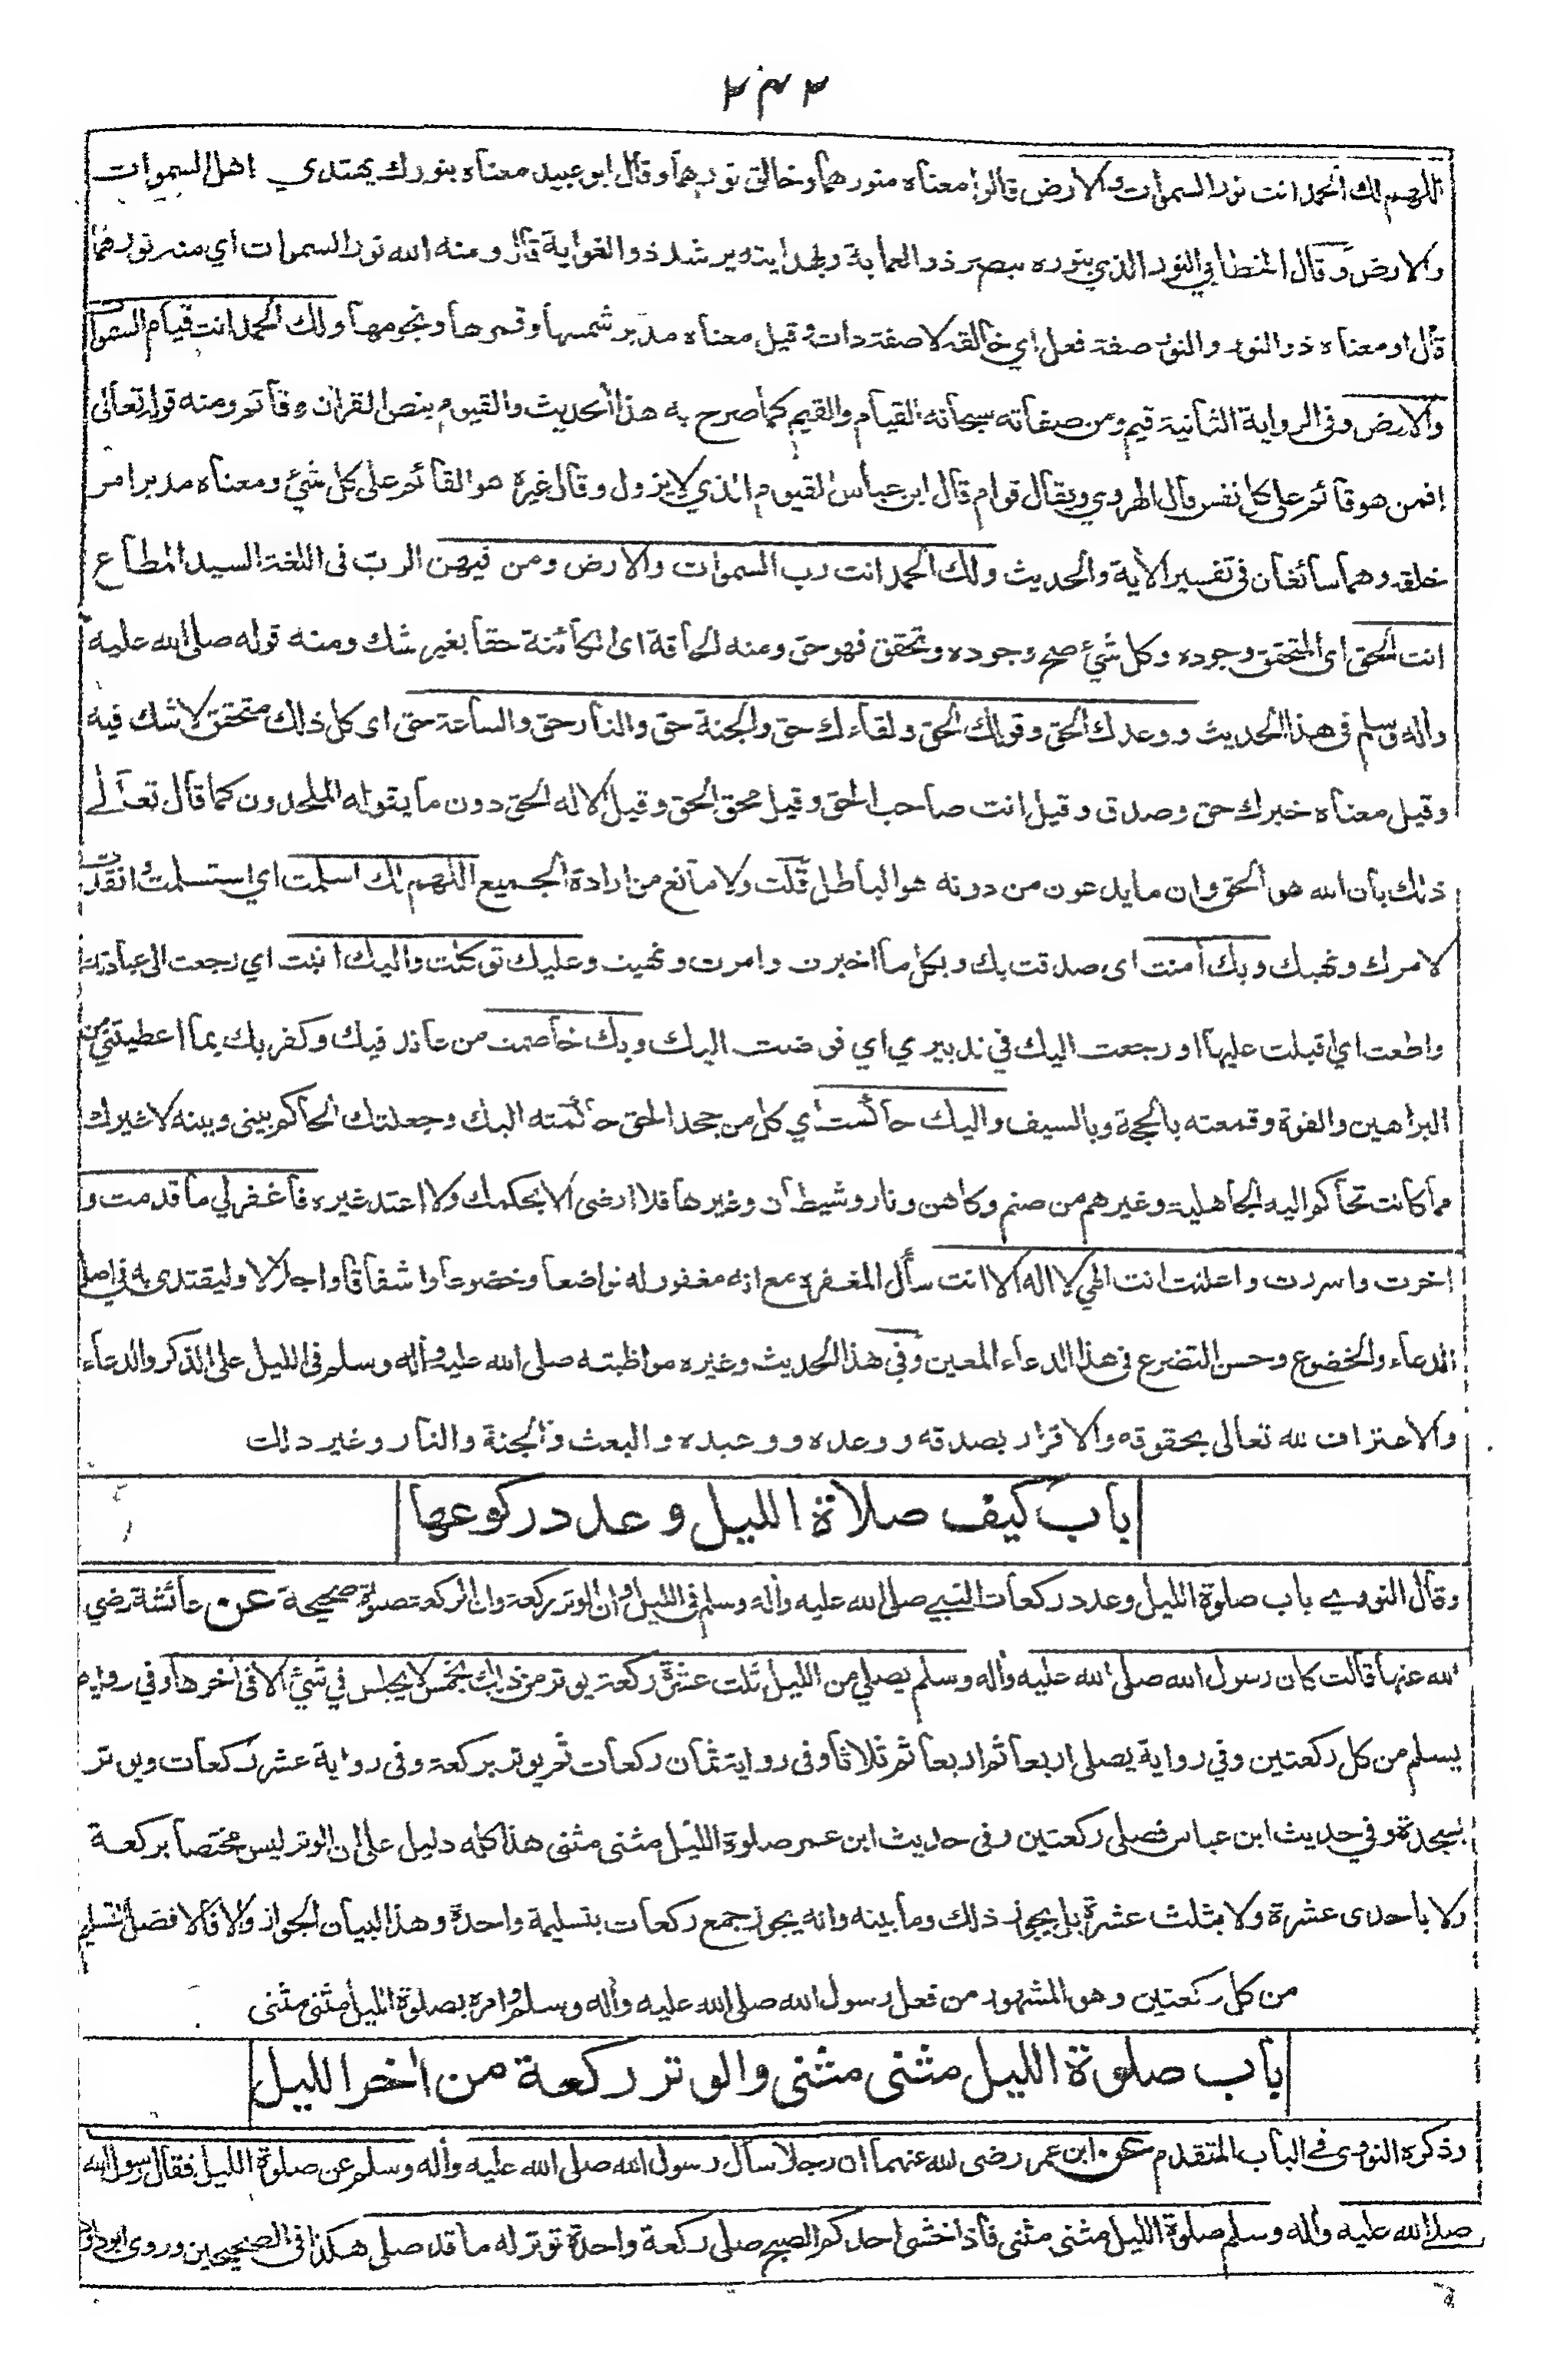 ٢٤٢
اللهم لك الحمد انت نور السموات والارض قالوا معناه منورهما وخالق نورهما وقال ابو عبيد معناه بنورك يهتدي اهل السموات
والارض وقال الخطابي النور الذي بنوره يبصر ذو العماية وبهدايته يرشد ذو الغواية قال ومنه الله نور السموات اي منه نورهما
قال او معناه ذو النور والنور صفة فعل اي خالقه لا صفة ذات وقيل معناه مدبر شمسها وقمرها ونجومها ولك الحمد انت قيام السموات
والارض وفى الرواية الثانية قيم ومن صفاته سبحانه القيام والقيم كما صرح به هذا الحديث والقيوم بنص القران وقائم ومنه قوله تعالى
افمن هو قائم على كل نفس قال الهروي ويقال قوام قال ابن عباس القيوم الذي لا يزول وقال غيره هو القائم على كل شئ ومعناه مدبر امر
خلقه وهما سائغان فى تفسير الأية والحديث ولك الحمد انت رب السموات والارض ومن فيهن الرب فى اللغة السيد المطاع
انت الحق اى المتحقق وجوده وكل شئ صح وجوده وتحقق فهو حق ومنه الحاقة اى الكائنة حقا بغير شك ومنه قوله صلى الله عليه
وأله وسلم فى هذا الحديث ووعدك الحق وقولك الحق ولقاءك حق والجنة حق والنار حق والساعة حق اى كل ذلك متحقق لا شك فيه
وقيل معناه خبرك حق وصدق وقيل انت صاحب الحق وقيل محق الحق وقيل الاله الحق دون ما يقوله الملحدون كما قال تعالى
ذلك بأن الله هو الحق وان ما يدعون من دونه هو الباطل قلت ولا مانع من ارادة الجميع اللهم لك اسلمت اي استسلمت وانقدت
لامرك ونهيك وبك أمنت اى صدقت بك وبكل ما اخبرت وامرت ونهيت وعليك توكلت واليك انبت اي رجعت الى عبادتك
واطعت اي اقبلت عليها او رجعت اليك في تدبيري اي فوضت اليك وبك خاصمت من عاند فيك وكفر بك بما اعطيتني من
البراهين والقوة وقمعته بالحجة وبالسيف واليك حاكمت اي كل من جحد الحق حاكمته اليك وجعلتك الحاكم بينى وبينه لا غيرك
مما كانت تحاكم اليه الجاهلية وغيرهم من صنم وكاهن ونار وشيطان وغيرها فلا ارضى الا بحكمك ولا اعتمد غيره فاغفر لي ما قدمت و
اخرت واسررت واعلنت انت الهي لا اله الا انت سأل المغفرة مع انه مغفور له تواضعا وخضوعا واشفاقا واجلالا وليقتدى به في اصل
الدعاء والخضوع وحسن التضرع فى هذا الدعاء المعين وفي هذا الحديث وغيره مواظبته صلى الله عليه وأله وسلم فى الليل على الذكر والدعاء
والاعتراف لله تعالى بحقوقه والاقرار بصدقه ووعده ووعيده والبعث والجنة والنار وغير ذلك
باب كيف صلاة الليل وعدد ركوعها
وقال النووي باب صلوة الليل وعدد ركعات النبي صلى الله عليه وأله وسلم فى الليل وان الوتر ركعة وان الركعة صلوة صحيحة عن عائشة رضي
الله عنها قالت كان رسول الله صلى الله عليه وأله وسلم يصلي من الليل ثلث عشرة ركعة يوتر من ذلك بخمس لا يجلس في شئ الا فى أخرها وفي رواية
يسلم من كل ركعتين وفي رواية يصلى اربعا ثم اربعا ثم ثلاثا وفى رواية ثمان ركعات ثم يوتر بركعة وفى رواية عشر ركعات ويوتر
بسجدة وفي حديث ابن عباس فصلى ركعتين وفى حديث ابن عمر صلوة الليل مثنى مثنى هذا كله دليل على ان الوتر ليس مختصا بركعة
ولا باحدى عشرة ولا بثلث عشرة بل يجوز ذلك وما بينه وانه يجوز جمع ركعات بتسليمة واحدة وهذا لبيان الجواز والا فالافضل التسليم
من كل ركعتين وهو المشهور من فعل رسول الله صلى الله عليه وأله وسلم وامره بصلوة الليل مثنى مثنى
باب صلوة الليل مثنى مثنى والوتر ركعة من اخر الليل
وذكره النووى في الباب المتقدم عن ابن عمر رضى الله عنهما ان رجلا سأل رسول الله صلى الله عليه وأله وسلم عن صلوة الليل فقال رسول الله
صلى الله عليه وأله وسلم صلوة الليل مثنى مثنى فاذا خشى احدكم الصبح صلى ركعة واحدة توتر له ما قد صلى هكذا فى الصحيحين وروى ابو داؤد